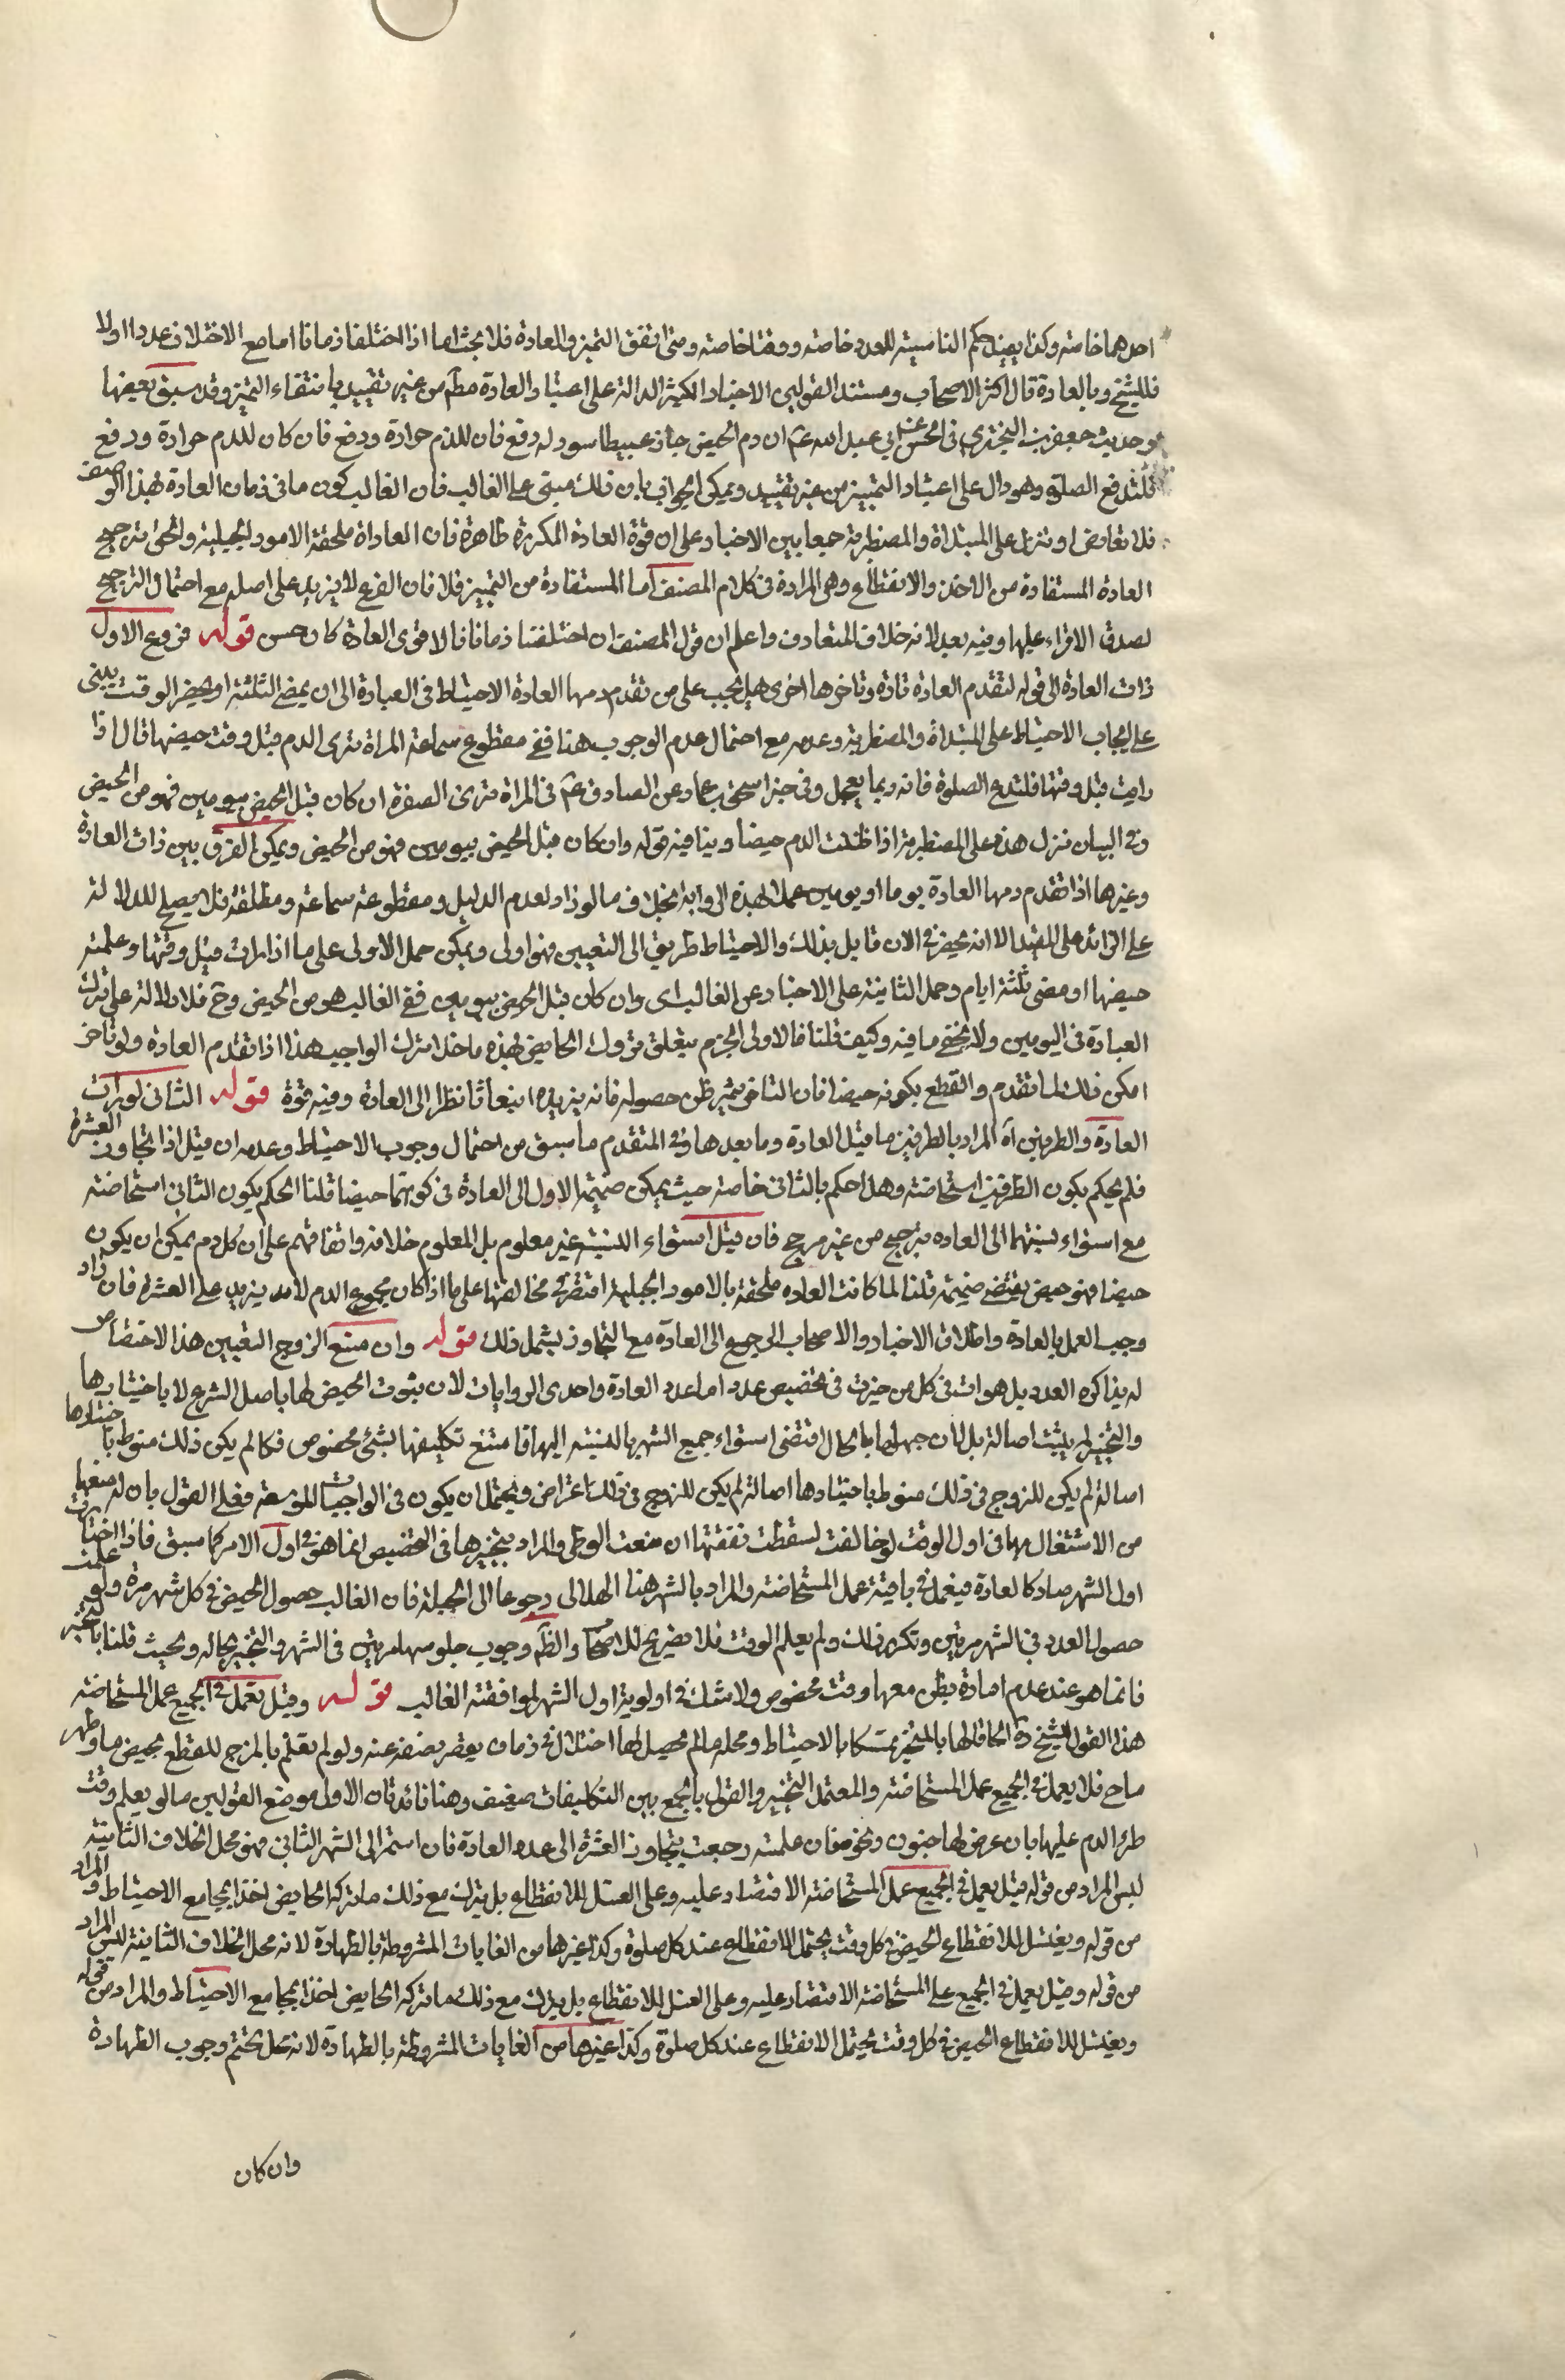 احدهما خاصته وكذا يعيد حكم الناسيته للعدد خاصته ووقتا خاصته ومتى اتفق التميز والعادة فلا بحث اما اذا اختلفا زمانا اما مع الاختلاف عددا اولا
فللشيخ وبالعادة قال اكثر الاصحاب ومستند القولين الاخبار الكثيرة الدالة على اعتبار العادة مطم من غير تقييد بانتقاء التميز وقد سبق بعضها
وحديث حفص بن البختري في الحسن عن ابي عبد الله عم ان دم الحيض حار عبيط اسود له دفع فان للدم حرارة ودفع فان كان للدم حرارة ودفع
فلتدع الصلوة وهو دال على اعتبار التمييز من غير تقييد ويمكن الجواب بان ذلك مبني على الغالب فان الغالب كون ما في زمان العادة بهذا الوصف
فلا تعارض او تنزل على المبتداة والمضطربة جمعا بين الاخبار على ان قوة العادة المكررة ظاهرة فان العاداة ملحقة الامور لجبلية والحق ترجيح
العادة المستفادة من الاخذ والانقطاع وهي المرادة في كلام المصنف اما المستفادة من التمييز فلا فان الفرع لا يزيد على اصله مع احتمال الترجيح
لصدق الاقراء عليها وفيه بعد لانه خلاف المتعارف واعلم ان قول المصنف ان اختلفتا زمانا فالاقوى العادة كان حسن قوله فروع الاول
ذات العادة الى قوله لتقدم العادة تارة وتاخرها اخرى هل يجب على من تقدم دمها العادة الاحتياط في العبادة الى ان يمضي الثلثة او يحضر الوقت يبنى
على ايجاب الاحتياط على المبتداة والمضطربة وعدمه مع احتمال عدم الوجوب هنا ففي مقطوع سماعة المراة ترى الدم قبل وقت حيضها قال اذا
رات قبل وقتها فلتدع الصلوة فانه ربما يعجل وفي خبر اسحق بن عمار عن الصادق عم في المراة ترى الصفرة ان كان قبل الحيض بيومين فهو من الحيض
وفي البيان نزل هذه على المضطربة اذا ظنت الدم حيضا وينافيه قوله وان كان قبل الحيض بيومين فهو من الحيض ويمكن الفرق بين ذات العادة
وغيرها اذا تقدم دمها العادة يوما او يومين عملا بهذه الرواية بخلاف ما لو زاد لعدم الدليل ومقطوعة سماعة ومطلقة فلا يصلح للدلالة
على الزائد على المقيد الا انه يحضرني الان قايل بذلك والاحتياط طريق الى التعيين فهو اولى ويمكن حمل الاولى على ما اذا رات قبل وقتها وعلمته
حيضها او مضى ثلثة ايام وحمل الثانية على الاخبار عن الغالب اى وان كان قبل الحيض بيومين ففي الغالب هو من الحيض وح فلا دلالة على ترك
العبادة في اليومين ولا يخفى ما فيه وكيف قلنا فالاولى الجزم بتعلق تروك الحايض بهذه ما خلا ترك الواجب هذا اذا تقدم العادة ولو تاخر
امكن ذلك لما تقدم والقطع بكونه حيضا فان التاخر يثير ظن حصوله فانه يزيده انبعاثا نظرا الى العادة وفيه قوة قوله الثاني لو رات
العادة والطرفين آه المراد بالطرفين ما قبل العادة وما بعدها وفي المتقدم ما سبق من احتمال وجوب الاحتياط وعدمه ان قيل اذا تجاوز العشرة
فلم يحكم بكون الطرفين استحاضة وهلا حكم بالثاني خاصة حيث يمكن ضميمة الاول الى العادة في كونهما حيضا قلنا الحكم بكون الثاني استحاضة
مع استواء نسبتهما الى العادة ترجيح من غير مرجح فان قيل استواء النسبة غير معلوم بل المعلوم خلافه واتفاقهم على ان كل دم يمكن ان يكون
حيضا فهو حيض يقتضي ضميمته قلنا لما كانت العادة ملحقة بالامور الجبلية اقتصر في مخالفتها على ما اذا كان مجموع الدم لا يزيد على العشرة فان زاد
وجب العمل بالعادة واطلاق الاخبار والاصحاب الرجوع الى العادة مع التجاوز يشمل ذلك قوله وان منع الزوج التعيين هذا لا اختصاص
له بذاكرة العدد بل هو ات في كل من خيرت في تخصيص عدد اما عدد العادة واحدى الروايات لان ثبوت الحيض لها باصل الشرع لا باختيارها
والتخيير لم يثبت اصالة بل لان جهلها بالحال اقتضى استواء جميع الشهر بالنسبة اليها فامتنع تكليفها بشئ مخصوص فكما لم يكن ذلك منوطا باختيارها
اصالة لم يكن للزوج في ذلك منوطا باختيارها اصالة لم يكن للزوج في ذلك اعتراض ويحتمل ان يكون في الواجبات الموسعة فعلى القول بان له منعها
من الاشتغال بها في اول الوقت لو خالفت لسقطت نفقتها ان منعت الوطى والمراد بتخيرها في التخصيص انما هو في اول الامر كما سبق فاذا اختارت
اول الشهر صار كالعادة فيعمل في باقيته عمل المستحاضة والمراد بالشهر هنا الهلالى رجوعا الى الجبلة فان الغالب حصول الحيض في كل شهر مرة ولو علمت
حصول العدد في الشهر مرتين وتكرر ذلك ولم يعلم الوقت فلا تصريح للاصحاب والظم وجوب جلوسها مرتين في الشهر والتخيير بحاله وبحيث قلنا بالتخيير
فانما هو عند عدم امارة يظن معها وقت مخصوص ولا شك في اولوية اول الشهر لموافقته الغالب قوله وقيل تعمل في الجميع عمل المستحاضة
هذا القول للشيخ ره الحاقا لها بالمتحيرة تمسكا بالاحتياط ومحله ما لم يحصل لها اختلال في زمان يقصر نصفه عنه ولو لم يعلم بالمزج للقطع بحيض ما وطهر
ما ح فلا يعمل في الجميع عمل المستحاضة والمعتمد التخيير والقول بالجمع بين التكليفات ضعيف وهنا فائدتان الاولى موضع القولين ما لو يعلم وقت
طرو الدم عليها بان عرض لها جنون ونحوه فان علمته رجعت بتجاوز العشرة الى عدد العادة فان استمر الى الشهر الثاني فهو محل الخلاف الثانية
ليس المراد من قوله قيل يعمل في الجميع عمل المستحاضة الاقتصار عليه وعلى الغسل للانقطاع بل يترك مع ذلك ما تركه الحايض اخذا بجامع الاحتياط والمراد
من قوله ويغتسل للانقطاع الحيض في كل وقت يحتمل الانقطاع عند كل صلوة وكذا غيرها من الغايات المشروطة بالطهارة لانه محل الخلاف الثانية ليس المراد
من قوله وقيل يعمل في الجميع على المستحاضة الاقتصار عليه وعلى الغسل للانقطاع بل يترك مع ذلك ما تركه الحايض اخذا بجامع الاحتياط والمراد من قوله
ويغتسل للانقطاع الحيض في كل وقت يحتمل الانقطاع عند كل صلوة وكذا غيرها من الغايات المشروطة بالطهارة لانه محل تحتم وجوب الطهارة
وان كان